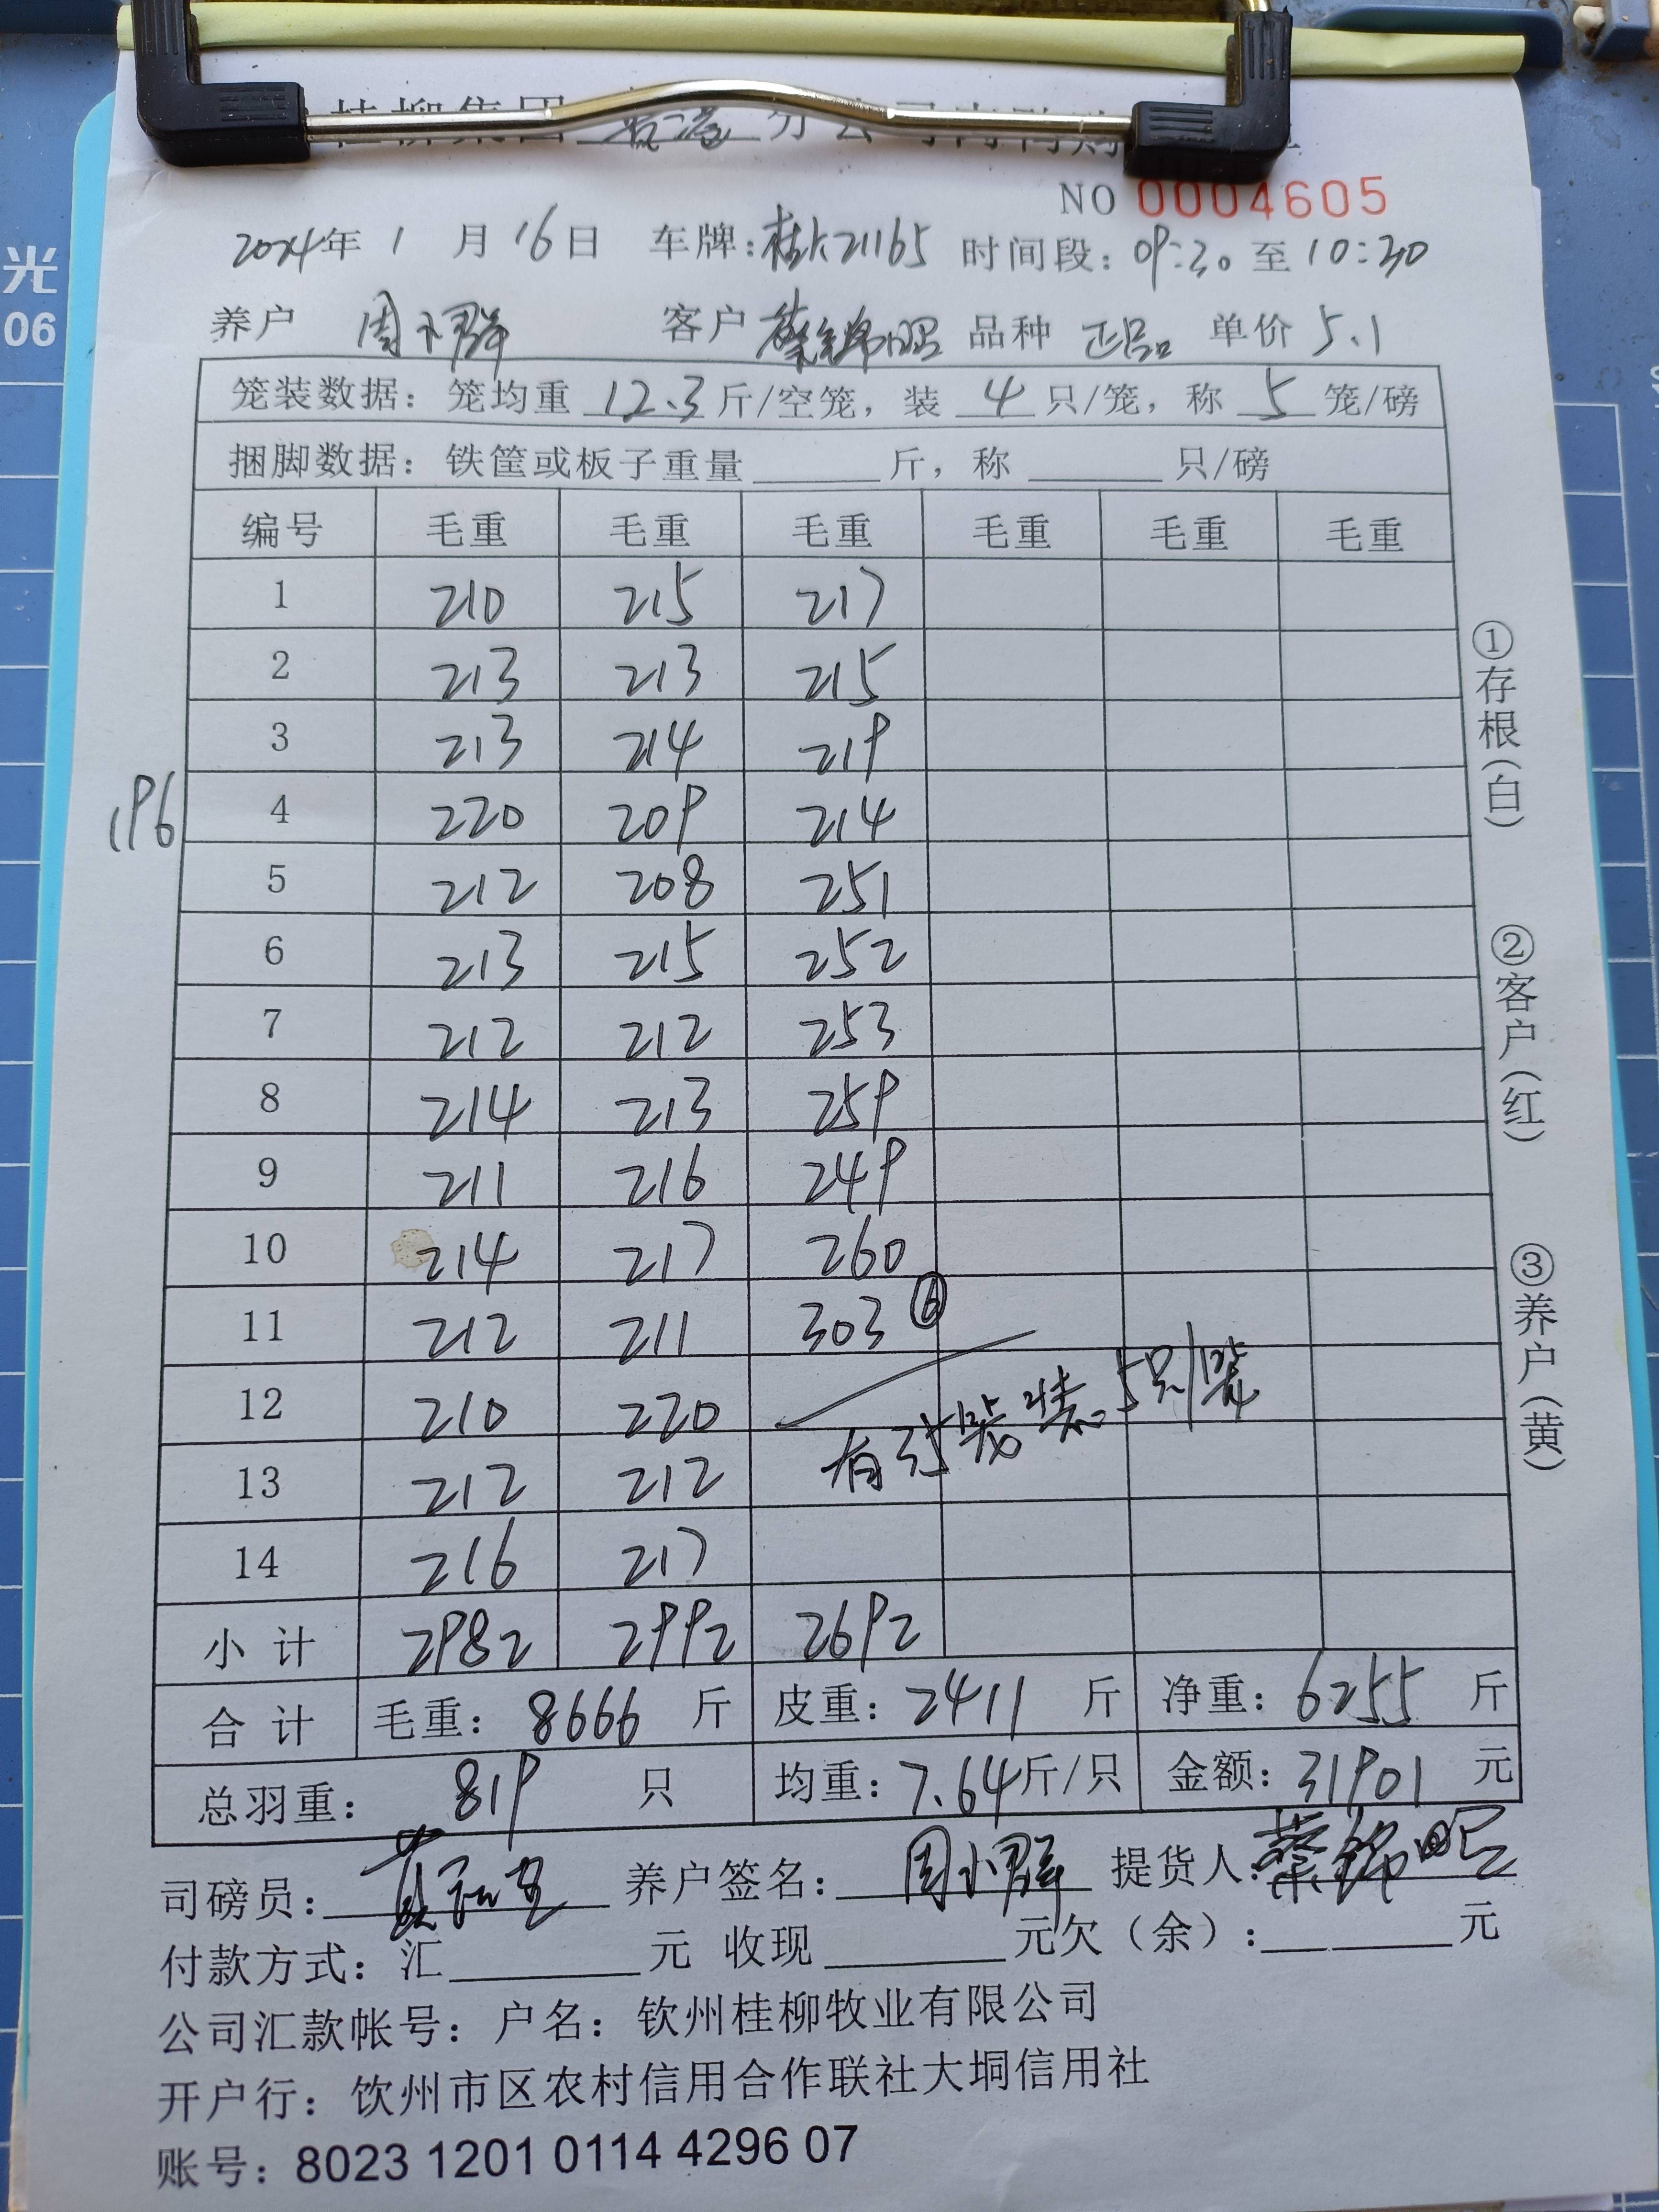 桂柳集团 分公司
NO 0004605
2024年 1 月 16日 车牌: 21165 时间段: 09:30 至 10:30
养户 周小群 客户 蔡锦昭 品种 正品 单价 5.1
笼装数据: 笼均重 12.3 斤/空笼, 装 4 只/笼, 称 5 笼/磅
捆脚数据: 铁筐或板子重量 斤, 称 只/磅
编号 毛重 毛重 毛重 毛重 毛重 毛重
1 210 215 217
2 213 213 215
3 213 214 219
196
4 220 209 214
5 212 208 251
6 213 215 252
7 212 212 253
8 214 213 259
9 211 216 249
10 214 217 260
11 212 211 303 ⑥
12 210 220
有35笼装5只/笼
13 212 212
14 216 217
小计 2982 2992 2692
合计 毛重: 8666 斤 皮重: 2411 斤 净重: 6255 斤
总羽重: 819 只 均重: 7.64斤/只 金额: 31901 元
司磅员: 养户签名: 周小群 提货人: 蔡锦昭
付款方式: 汇 元 收现 元欠(余): 元
公司汇款帐号: 户名: 钦州桂柳牧业有限公司
开户行: 饮州市区农村信用合作联社大垌信用社
账号: 8023 1201 0114 4296 07
①存根(白)
②客户(红)
③养户(黄)
光
06